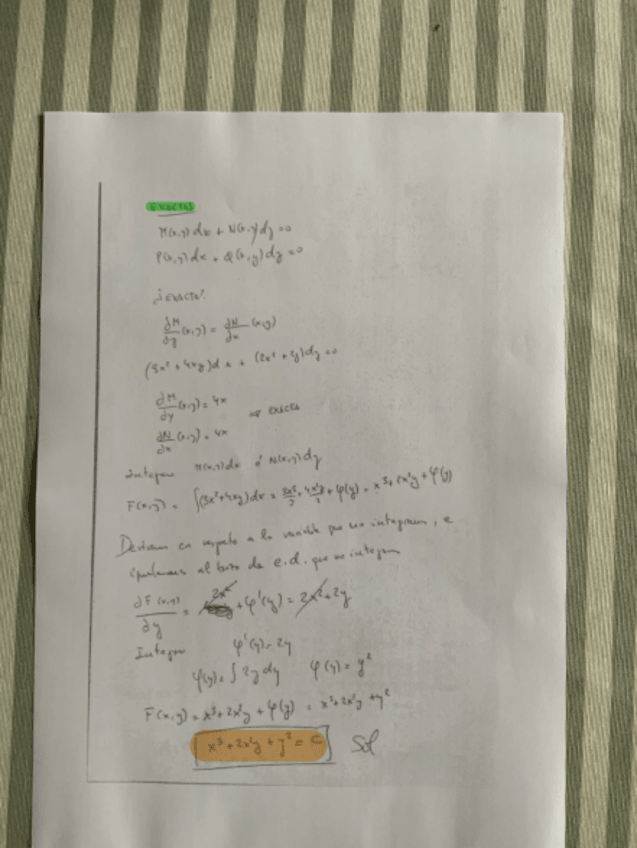 EXACTAS
M(x,y) dx + N(x,y) dy = 0
P(x,y) dx + Q(x,y) dy = 0
¿EXACTA?
∂M/∂y (x,y) = ∂N/∂x (x,y)
(3x² + 4xy) dx + (2x² + 2y) dy = 0
∂M/∂y (x,y) = 4x
⇒ EXACTA
∂N/∂x (x,y) = 4x
Integrar M(x,y) dx ó N(x,y) dy
F(x,y) = ∫(3x²+4xy) dx = 3x³/3 + 4x²y/2 + φ(y) = x³ + 2x²y + φ(y)
Derivamos en respecto a la variable que no integramos, e
igualamos al trozo de e.d. que no integramos
∂F(x,y)/∂y = 2x² + φ'(y) = 2x² + 2y
Integrar φ'(y) = 2y
φ(y) = ∫ 2y dy φ(y) = y²
F(x,y) = x³ + 2x²y + φ(y) = x³ + 2x²y + y²
x³ + 2x²y + y² = C Sol